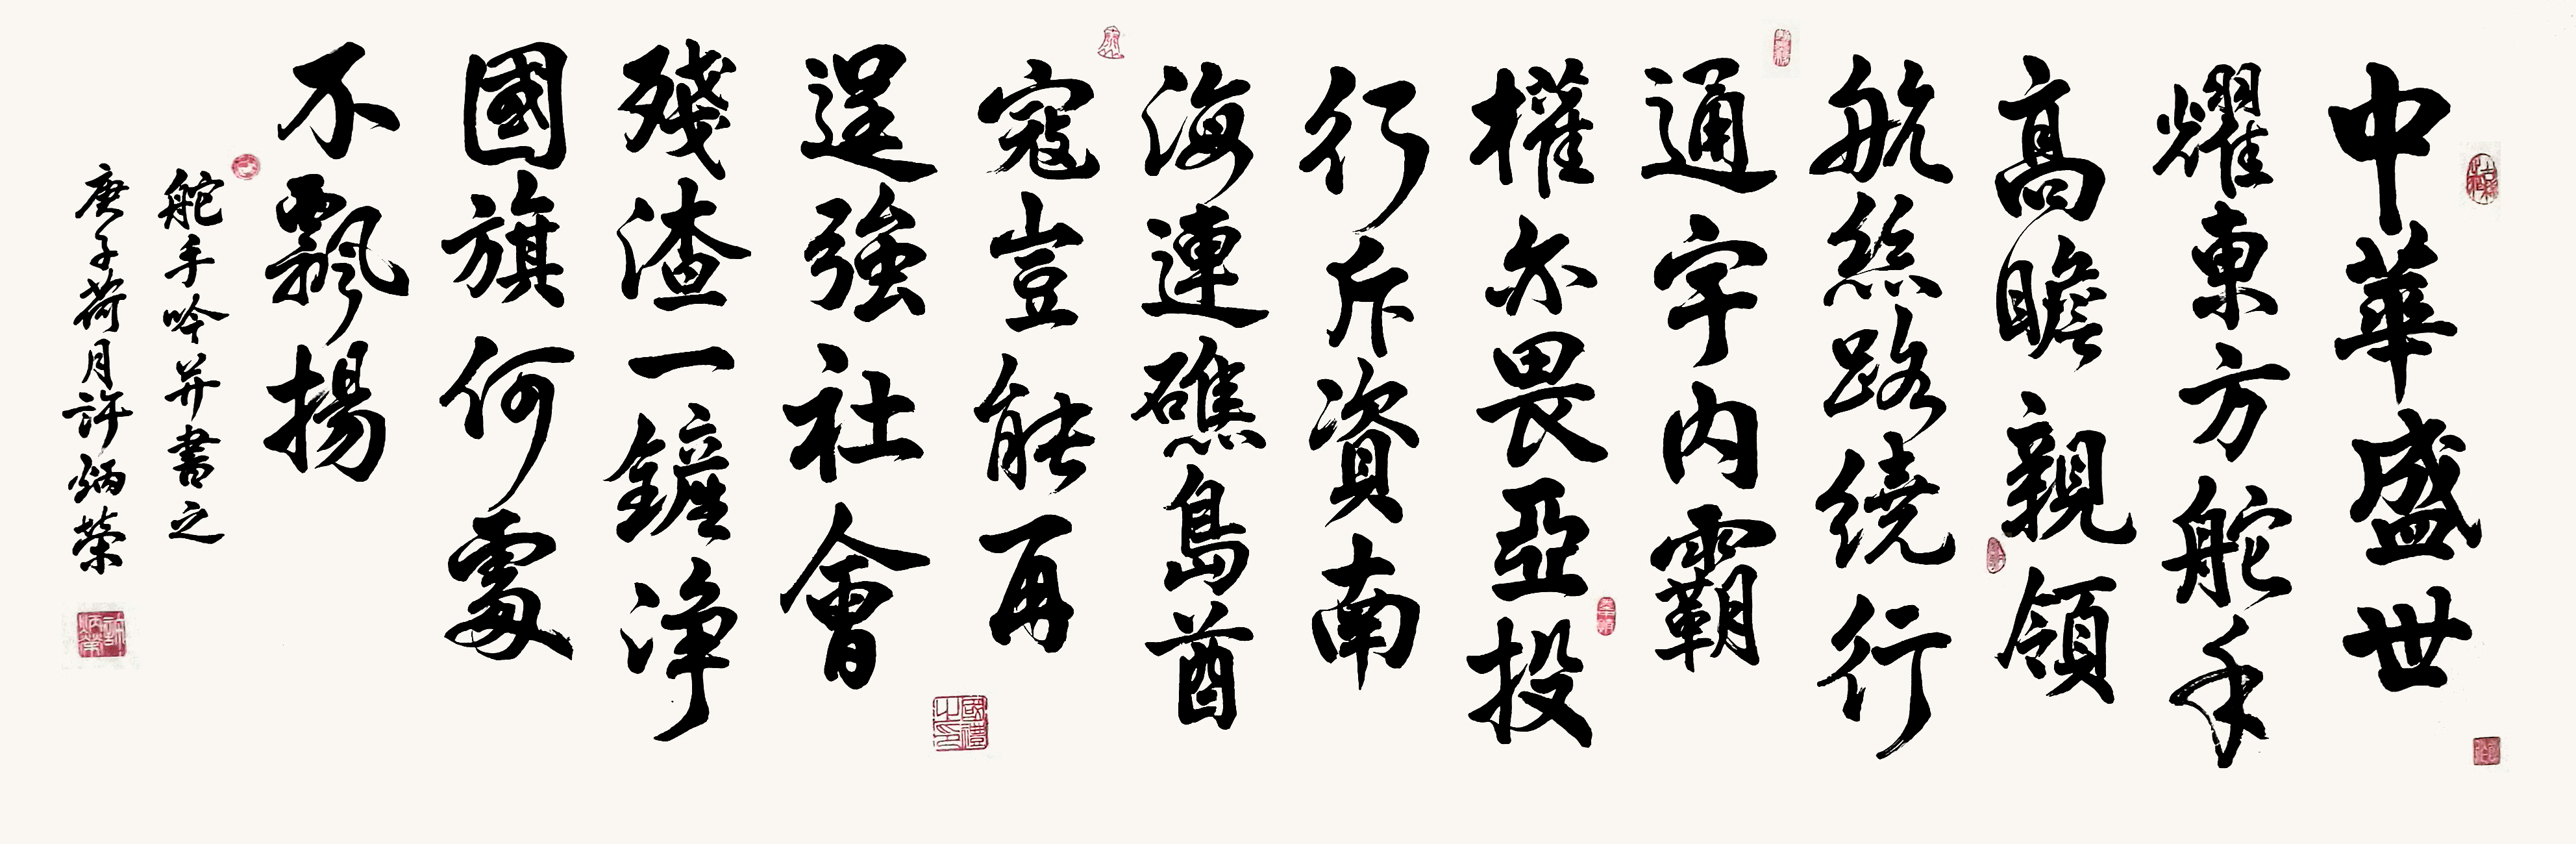 中華盛世
耀東方舵手
高瞻親領
航絲路繞行
通宇内霸
權尔畏亞投
行斥資南
海連礁島酋
寇豈能再
逞強社會
殘渣一鏟淨
國旗何處
不飄揚
舵手吟并書之
庚子荷月許炳榮
許炳榮